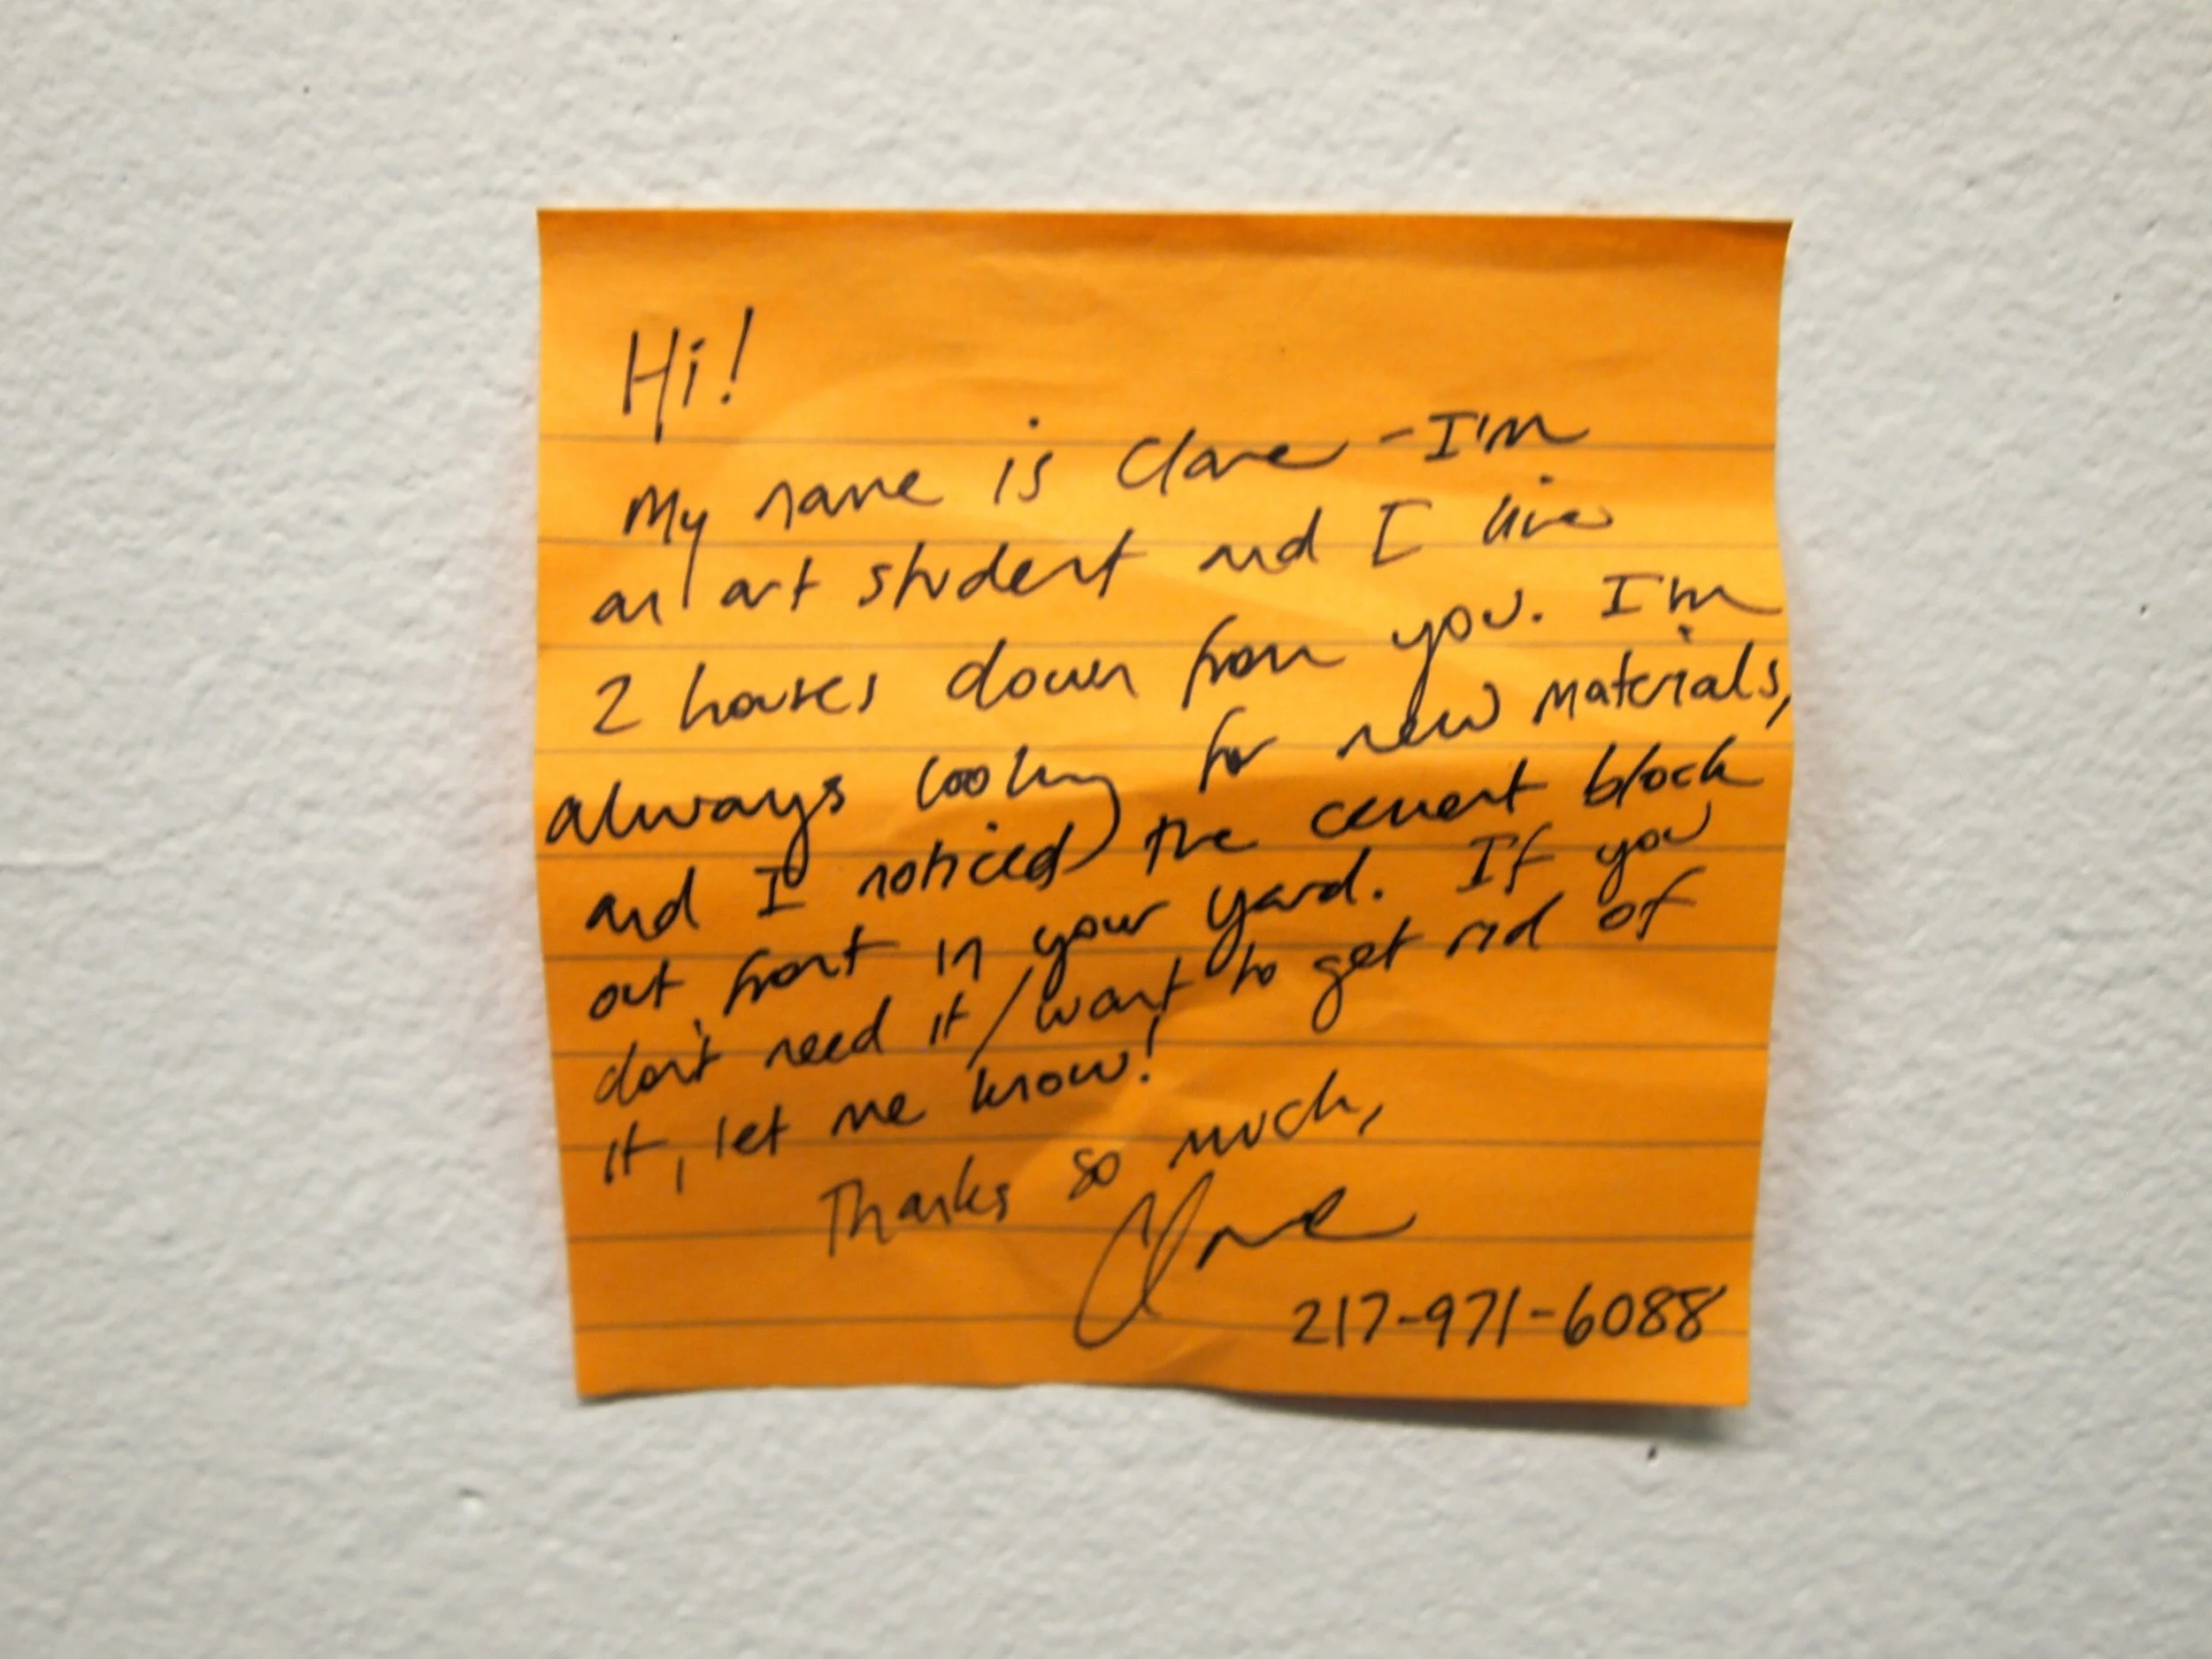 Hi!
My name is Clare - I'm
an art student and I live
2 houses down from you. I'm
always looking for new materials,
and I noticed the cement block
out front in your yard. If you
don't need it/want to get rid of
it, let me know!
Thanks so much,
Clare
217-971-6088